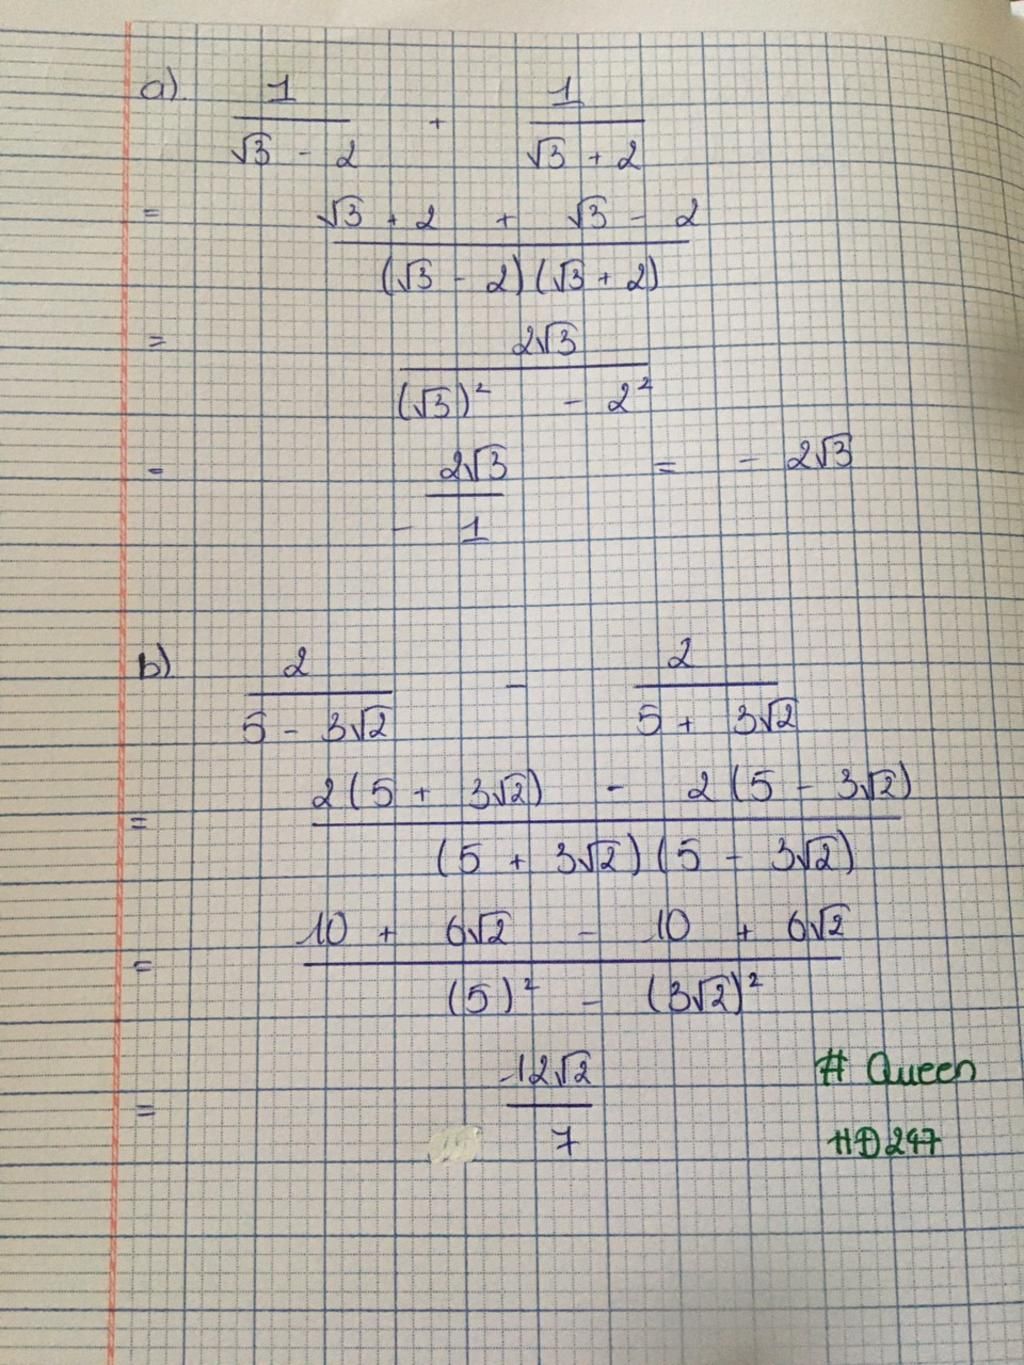 a) 1/(√3 - 2) + 1/(√3 + 2)
= (√3 + 2 + √3 - 2)/((√3 - 2)(√3 + 2))
= 2√3/((√3)² - 2²)
= 2√3/-1 = - 2√3
b) 2/(5 - 3√2) - 2/(5 + 3√2)
= (2(5 + 3√2) - 2(5 - 3√2))/((5 + 3√2)(5 - 3√2))
= (10 + 6√2 - 10 + 6√2)/((5)² - (3√2)²)
= 12√2/7
# Queen
HD247